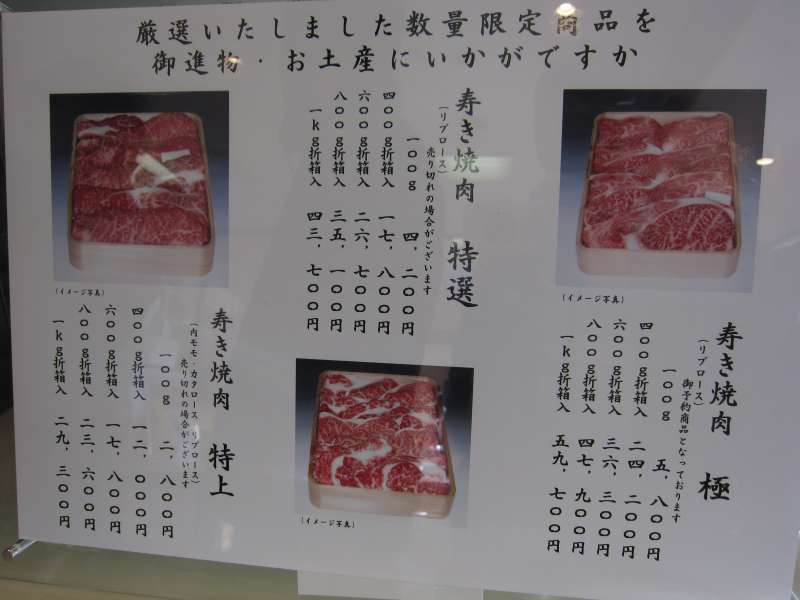 厳選いたしました数量限定商品を
御進物・お土産にいかがですか
寿き焼肉 極
(リブロース)
御予約商品となっております
一〇〇g 五、八〇〇円
四〇〇g折箱入 二四、二〇〇円
六〇〇g折箱入 三六、三〇〇円
八〇〇g折箱入 四七、九〇〇円
一kg折箱入 五九、七〇〇円
(イメージ写真)
寿き焼肉 特選
(リブロース)
売り切れの場合がございます
一〇〇g 四、二〇〇円
四〇〇g折箱入 一七、八〇〇円
六〇〇g折箱入 二六、七〇〇円
八〇〇g折箱入 三五、一〇〇円
一kg折箱入 四三、七〇〇円
(イメージ写真)
寿き焼肉 特上
(内モモ・カタロース、リブロース)
売り切れの場合がございます
一〇〇g 二、八〇〇円
四〇〇g折箱入 一二、〇〇〇円
六〇〇g折箱入 一七、八〇〇円
八〇〇g折箱入 二三、六〇〇円
一kg折箱入 二九、三〇〇円
(イメージ写真)